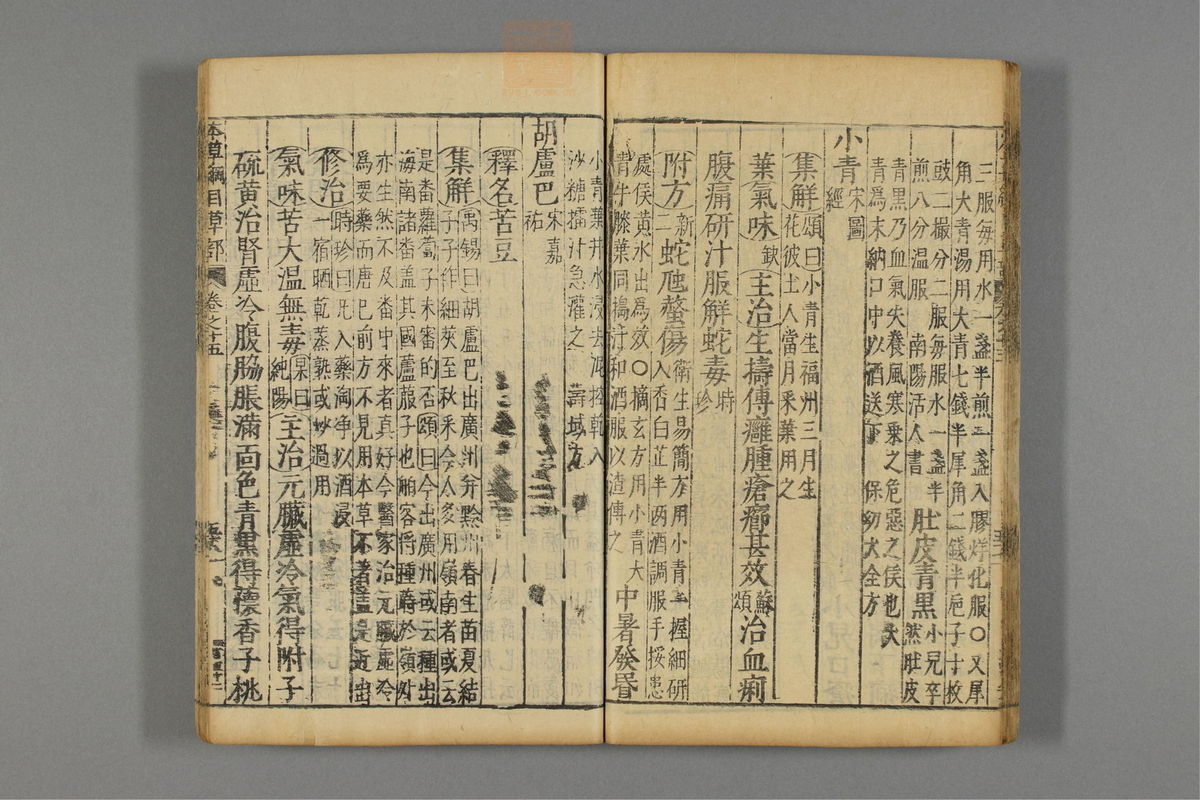 三服每用水一盞半煎一盞入膠烊化服○又犀
角大青湯用大青七錢半犀角二錢半巵子十枚
豉二撮分二服每服水一盞半
煎八分温服　南陽活人書
肚皮青黑
小兒卒然肚皮
青黑乃血氣失養風寒乗之危惡之候也大
青爲末納口中以酒送下　保幼大全方
小青
宋圖
經
集解
頌曰小青生福州三月生
花彼土人當月采葉用之
葉氣味
缺
主治生擣傅癰腫瘡癤甚效
蘇頌
治血痢
腹痛研汁服解蛇毒
時珍
附方
新二
蛇虺螫傷
衛生易簡方用小青一握細研
入香白芷半两酒調服手挼患
處候黄水出爲效○摘玄方用小青大
青牛膝葉同搗汁和酒服以渣傅之
中暑發昏
小青葉井水浸去泥控乾入
沙糖擂汁急灌之　壽域方
胡盧巴
宋嘉
祐
釋名苦豆
集解
禹錫曰胡盧巴出廣州并黔州春生苗夏結
子子作細莢至秋采今人多用嶺南者或云
是番蘿蔔子未審的否頌曰今出廣州或云種出
海南諸番蓋其國蘆菔子也舶客將種蒔於嶺外
亦生然不及番中來者真好今醫家治元臟虚冷
爲要藥而唐已前方不見用本草不著蓋是近出
修治
時珍曰凡入藥淘净以酒浸
一宿晒乾蒸熟或炒過用
氣味苦大温無毒
杲曰
純陽
主治元臟虚冷氣得附子
硫黄治腎虚冷腹脇脹滿面色青黒得懷香子桃
本草綱目草部
卷之十五